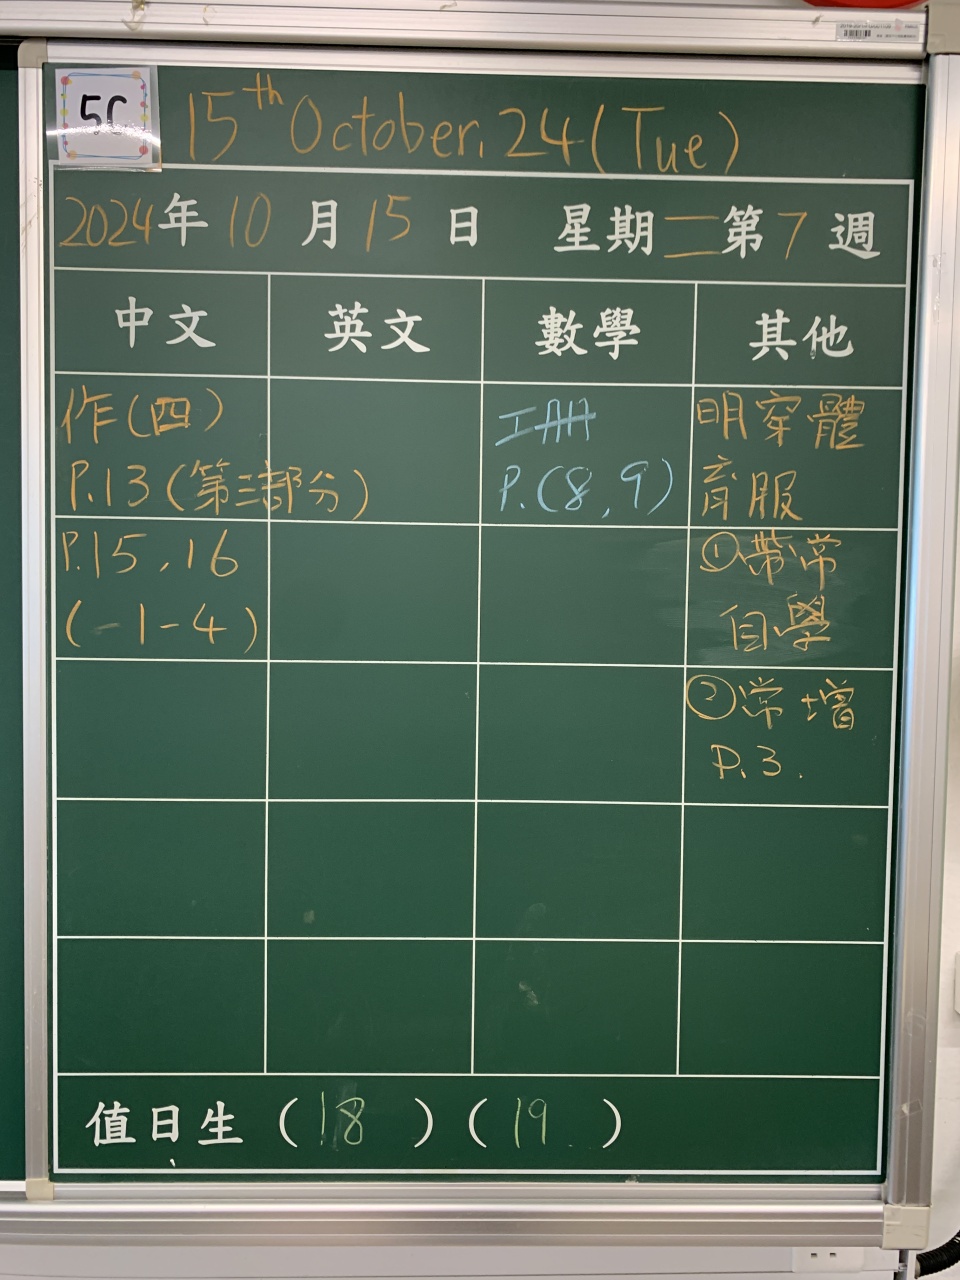 5C
15th October. 24 (Tue)
2024年10月15日 星期二第7週
中文 英文 數學 其他
作(四)
P.13(第三部分)
P.15, 16
(-1-4)
P.(8, 9)
明穿體
育服
①帶常
自學
②常增
P.3.
值日生(18)(19)